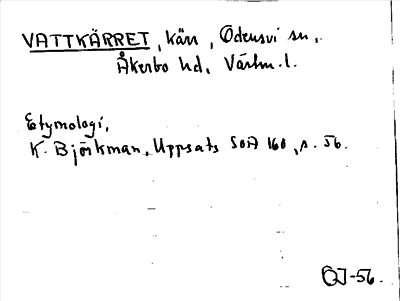 VATTKÄRRET, kärr, Odensvi sn,
Åkerbo hd, Västm. l.
Etymologi,
K. Björkman, Uppsats SOA 160, s. 56.
ÖJ-56.